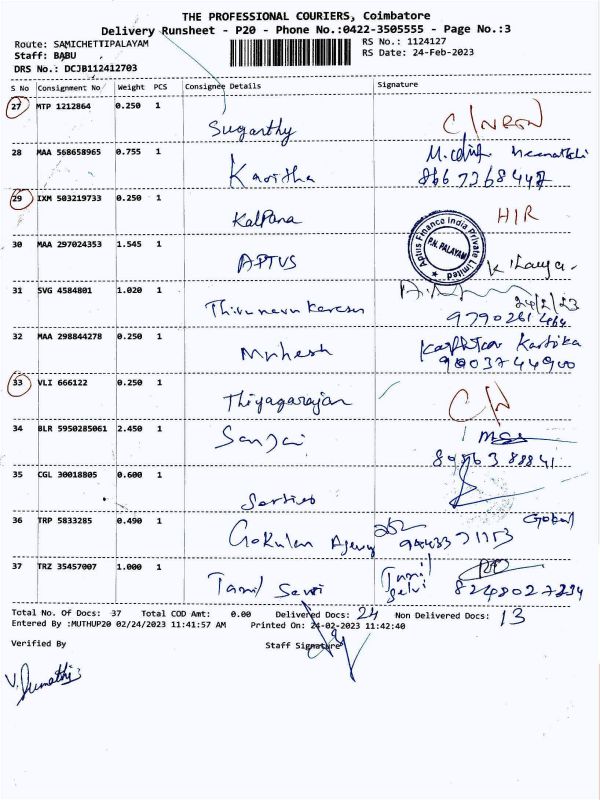 THE PROFESSIONAL COURIERS, Coimbatore
Delivery Runsheet - P20 - Phone No.:0422-3505555 - Page No.:3
Route: SAMICHETTIPALAYAM
RS No.: 1124127
Staff: BABU
RS Date: 24-Feb-2023
DRS No.: DCJB112412703
S No Consignment No Weight PCS Consignee Details Signature
27 MTP 1212864 0.250 1 Suganthy C/NRGN
28 MAA 568658965 0.755 1 Kavitha 8667268447
29 IXM 503219733 0.250 1 Kalpana HIR
30 MAA 297024353 1.545 1 APTUS
Aptus Finance India Private Limited
P.N. PALAYAM
31 SVG 4584801 1.020 1 Thirunavukarasu
24/2/23
9790261464
32 MAA 298844278 0.250 1 Mahesh Karthika
9003744900
33 VLI 666122 0.250 1 Thiyagarajan C/N
34 BLR 5950285061 2.450 1 Sanjai
8056388841
35 CGL 30018805 0.600 1
36 TRP 5833285 0.490 1 Gokulan Agency Gobal
9443371153
37 TRZ 35457007 1.000 1 Tamil Selvi Tamil Selvi
8248027234
Total No. Of Docs: 37 Total COD Amt: 0.00 Delivered Docs: 24 Non Delivered Docs: 13
Entered By :MUTHUP20 02/24/2023 11:41:57 AM Printed On: 24-02-2023 11:42:40
Verified By Staff Signature
V. Sumathi